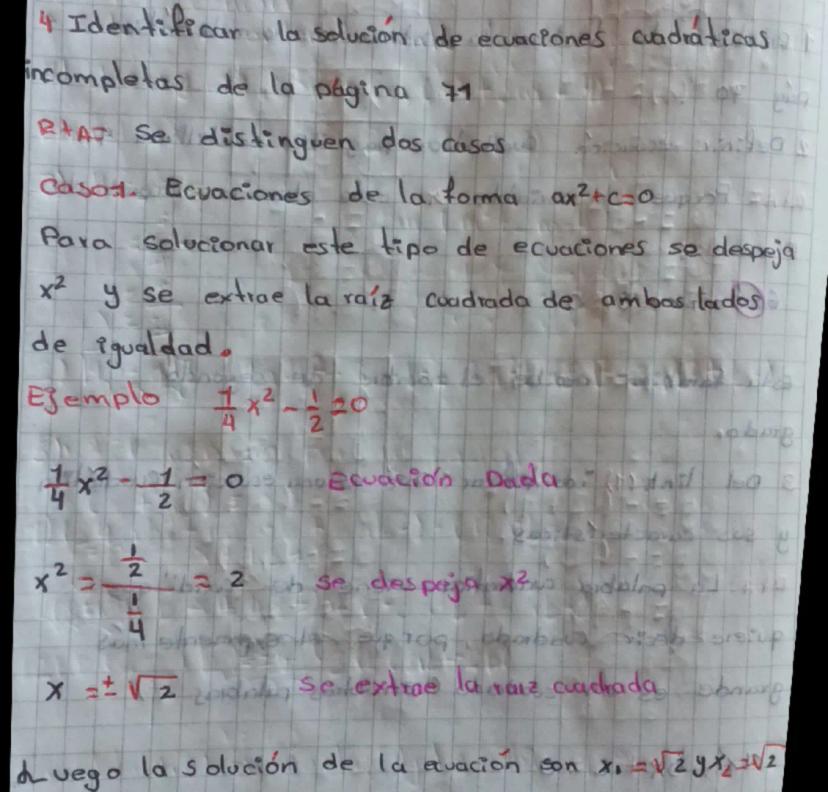 4 Identificar la solución de ecuaciones cuadráticas
incompletas de la página 71
R+A= Se distinguen dos casos
Caso 1. Ecuaciones de la forma ax²+c=0
Para solucionar este tipo de ecuaciones se despeja
x² y se extrae la raíz cuadrada de ambos lados
de igualdad.
Ejemplo 1/4 x² - 1/2 = 0
1/4 x² - 1/2 = 0 Ecuación Dada
x² = (1/2)/(1/4) = 2 se despeja x²
x = ±√2 se extrae la raíz cuadrada
Luego la solución de la ecuación son x₁ = √2 y x₂ = √2